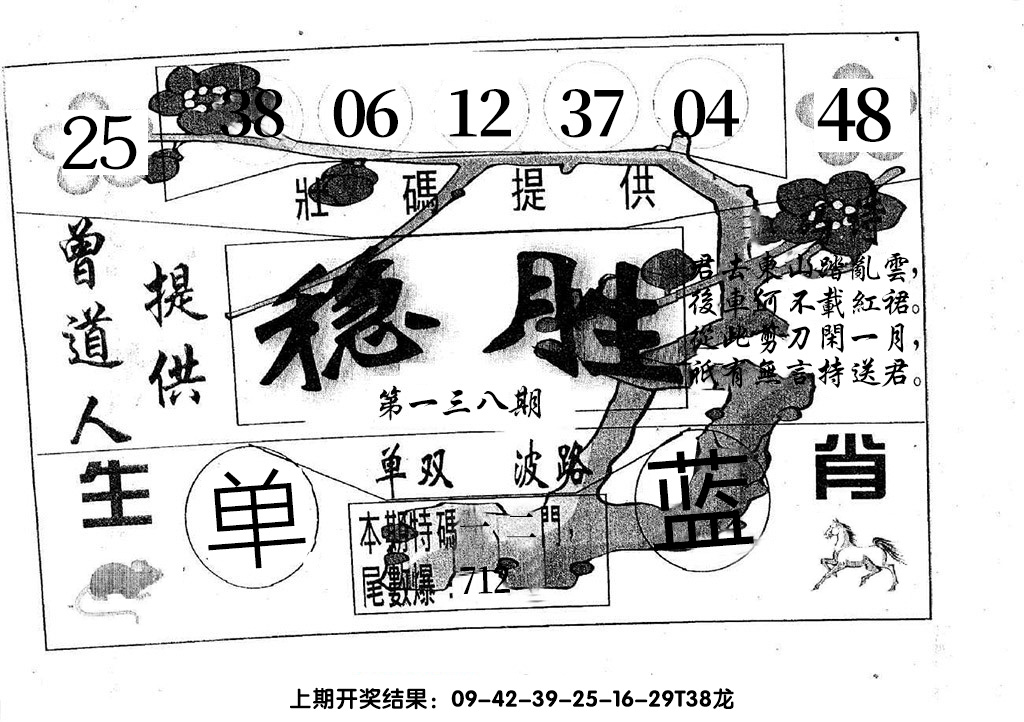 25 38 06 12 37 04 48
壯碼提供
特
曾道人
提供
稳胜
第一三八期
君去東山踏亂雲，
後車何不載紅裙。
從此剪刀閑一月，
祇有無言持送君。
单双 波路
生肖
单
蓝
本期特碼一、二門，
尾數爆：712
上期开奖结果：09-42-39-25-16-29T38龙